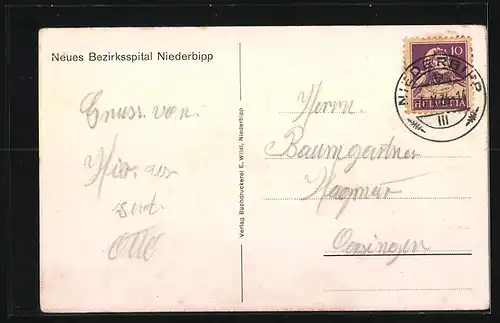 Neues Bezirksspital Niederbipp
Gruss von
Hier aus
Otto
Verlag Buchdruckerei E. Wildi, Niederbipp
Herrn
Baumgartner
10
HELVETIA
NIEDERBIPP
III